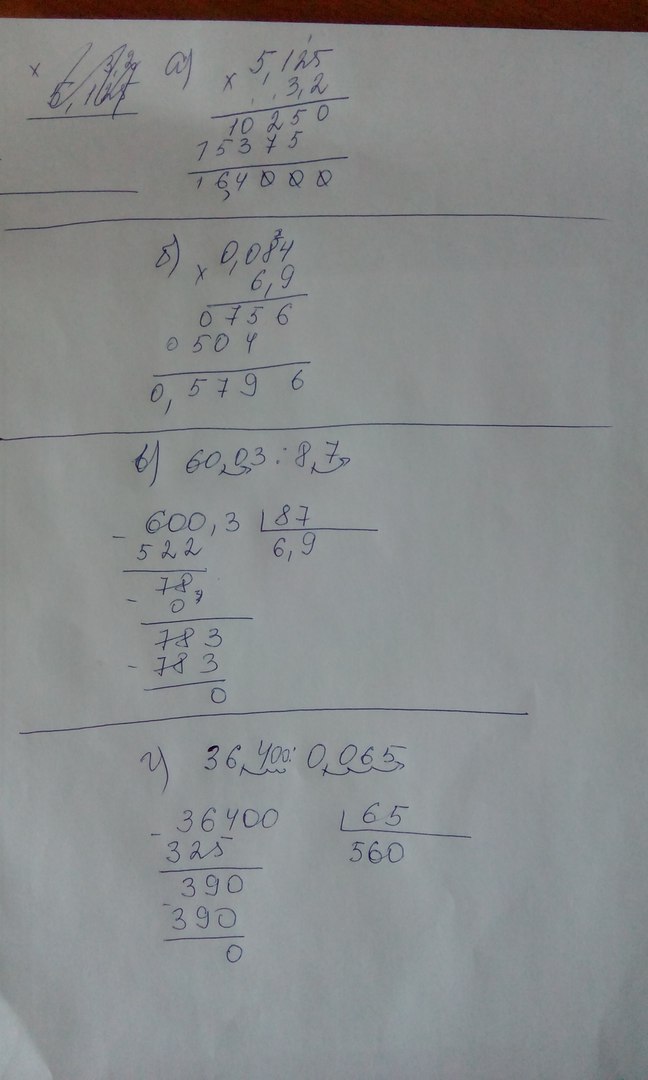 а) 5,125
× 3,2
10 250
15375
16,4000
б) 0,084
× 6,9
0756
0504
0,5796
в) 60,03 : 8,7
- 600,3 87
522 6,9
78,
- 0
783
- 783
0
г) 36,400 : 0,065
- 36400 65
325 560
390
- 390
0